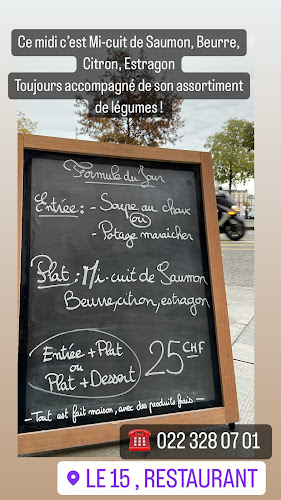 Ce midi c'est Mi-cuit de Saumon, Beurre,
Citron, Estragon
Toujours accompagné de son assortiment
de légumes !
Formule du Jour
Entrée : - Soupe au choux
ou
- Potage maraicher
Plat : Mi-cuit de Saumon
Beurre, citron, estragon
Entrée + Plat
ou
Plat + Dessert
25 CHF
- Tout est fait maison, avec des produits frais -
☎️ 022 328 07 01
📍 LE 15 , RESTAURANT